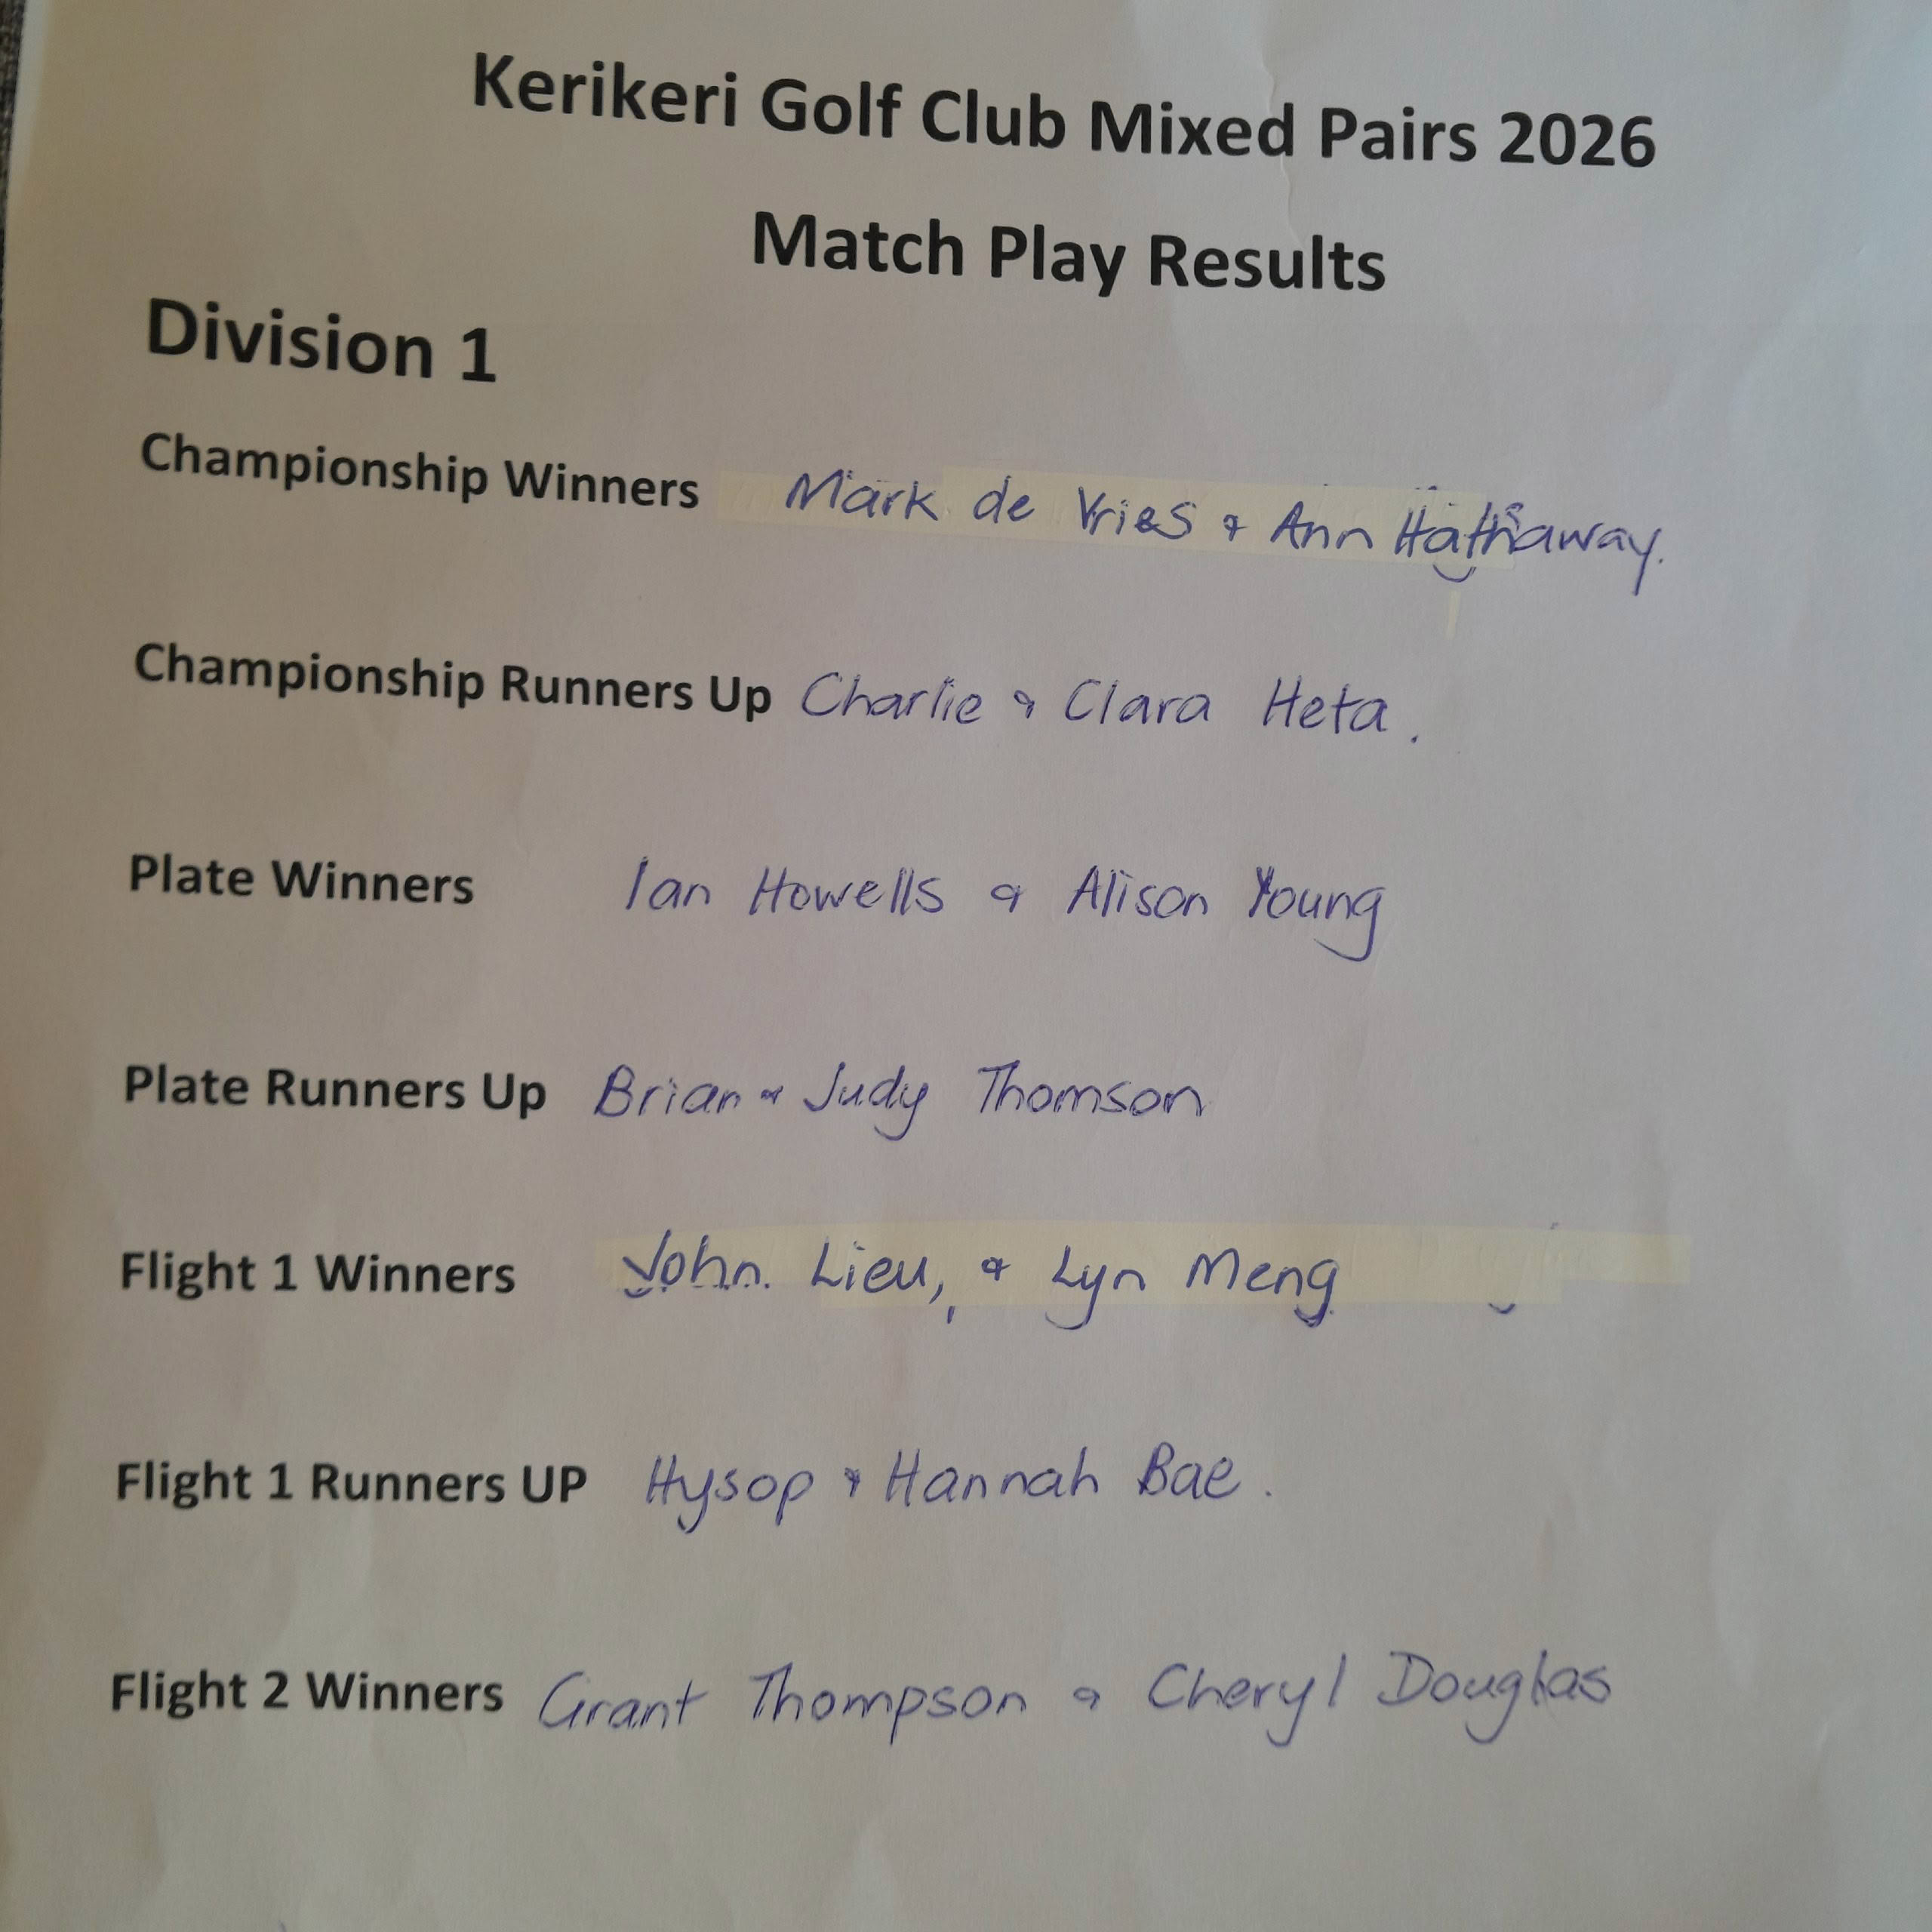 Kerikeri Golf Club Mixed Pairs 2026
Match Play Results
Division 1
Championship Winners Mark de Vries & Ann Hathaway.
Championship Runners Up Charlie & Clara Heta.
Plate Winners Ian Howells & Alison Young
Plate Runners Up Brian & Judy Thomson
Flight 1 Winners John. Lieu, & Lyn Meng
Flight 1 Runners UP Hysop & Hannah Bae.
Flight 2 Winners Grant Thompson & Cheryl Douglas